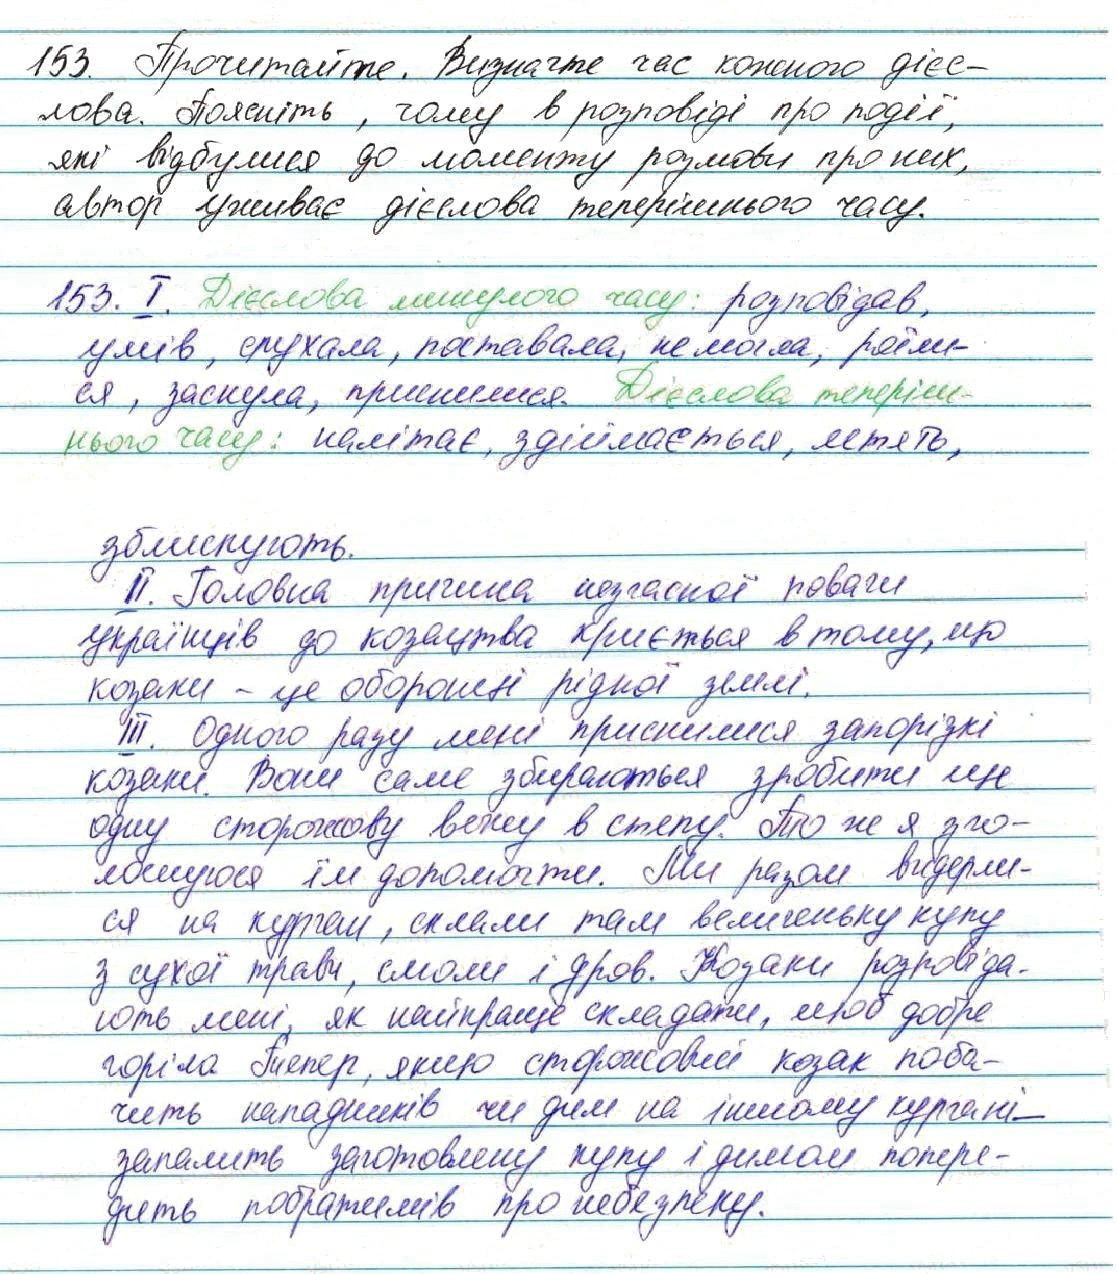 153. Прочитайте. Визначте час кожного дієс-
лова. Поясніть, чому в розповіді про події,
які відбулися до моменту розмови про них,
автор уживає дієслова теперішнього часу.
153. I. Дієслова минулого часу: розповідав,
умів, слухала, поставала, не могла, роїли-
ся, заснула, приснилися. Дієслова теперіш-
нього часу: налітає, здіймається, летять,
зблискують.
II. Головна причина незгасної поваги
українців до козацтва криється в тому, що
козаки – це оборонці рідної землі.
III. Одного разу мені приснилися запорізькі
козаки. Вони саме збираються зробити ще
одну сторожову вежу в степу. Тто ж я зго-
лошуюся їм допомогти. Ми разом видерли-
ся на курган, склали там величеньку купу
з сухої трави, смоли і дров. Козаки розповіда-
ють мені, як найкраще складати, щоб добре
горіла Тепер, якщо сторожовий козак поба-
чить нападників чи дим на іншому кургані –
запалить заготовлену купу і димом попере-
дить побратимів про небезпеку.